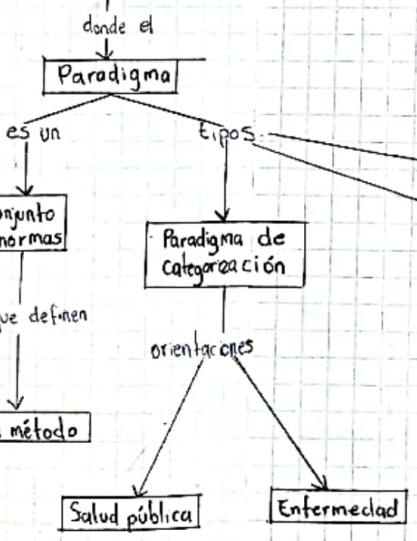 donde el
Paradigma
es un
tipos
onjunto
normas
Paradigma de
categorización
ue definen
orientaciones
método
Salud pública
Enfermedad